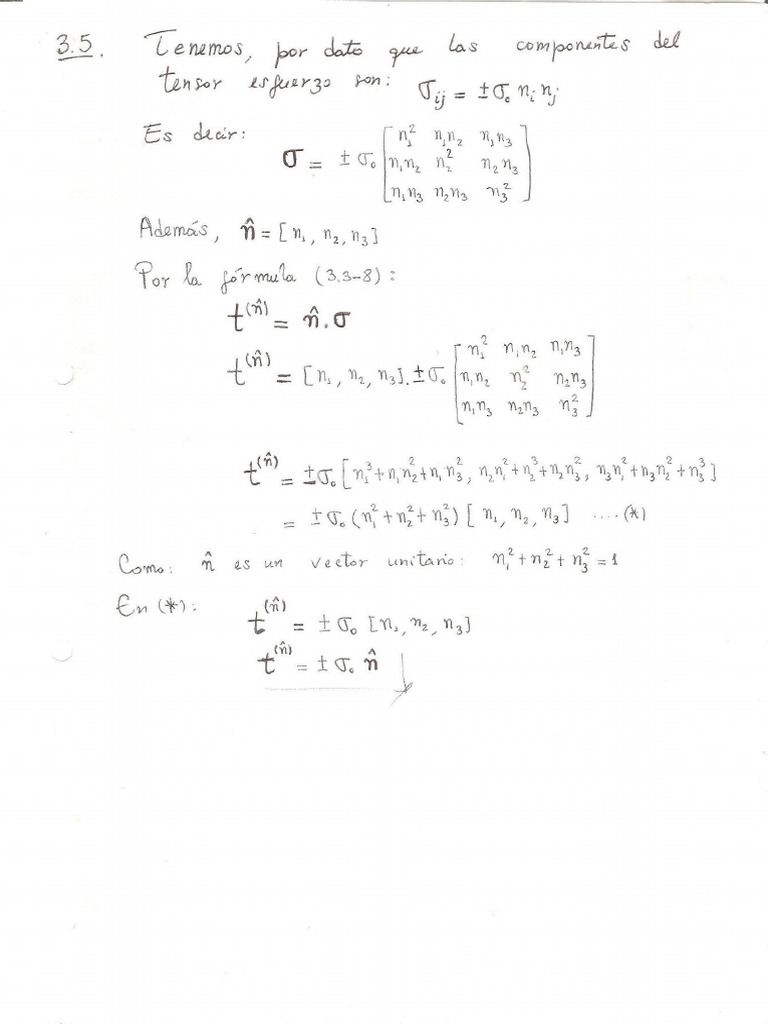 3.5. Tenemos, por dato que las componentes del
tensor esfuerzo son: σij = ±σ₀ ni nj
Es decir: σ = ±σ₀ [n₁² n₁n₂ n₁n₃
n₁n₂ n₂² n₂n₃
n₁n₃ n₂n₃ n₃²]
Además, n̂ = [n₁, n₂, n₃]
Por la fórmula (3.3-8):
t^(n̂) = n̂.σ
t^(n̂) = [n₁, n₂, n₃].±σ₀ [n₁² n₁n₂ n₁n₃
n₁n₂ n₂² n₂n₃
n₁n₃ n₂n₃ n₃²]
t^(n̂) = ±σ₀ [n₁³+n₁n₂²+n₁n₃², n₂n₁²+n₂³+n₂n₃², n₃n₁²+n₃n₂²+n₃³]
= ±σ₀ (n₁²+n₂²+n₃²) [n₁, n₂, n₃] ....(*)
Como: n̂ es un vector unitario: n₁²+n₂²+n₃²=1
En (*): t^(n̂) = ±σ₀ [n₁, n₂, n₃]
t^(n̂) = ±σ₀ n̂